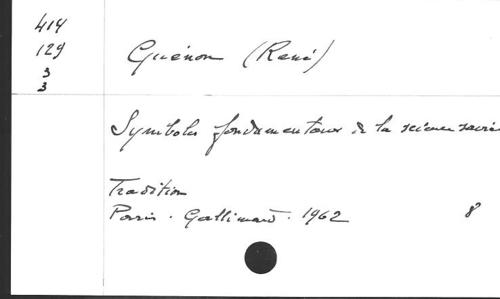 414
129
3
3
Guénon (René)
Symboles fondamentaux de la science sacrée
Tradition
Paris. Gallimard. 1962
8